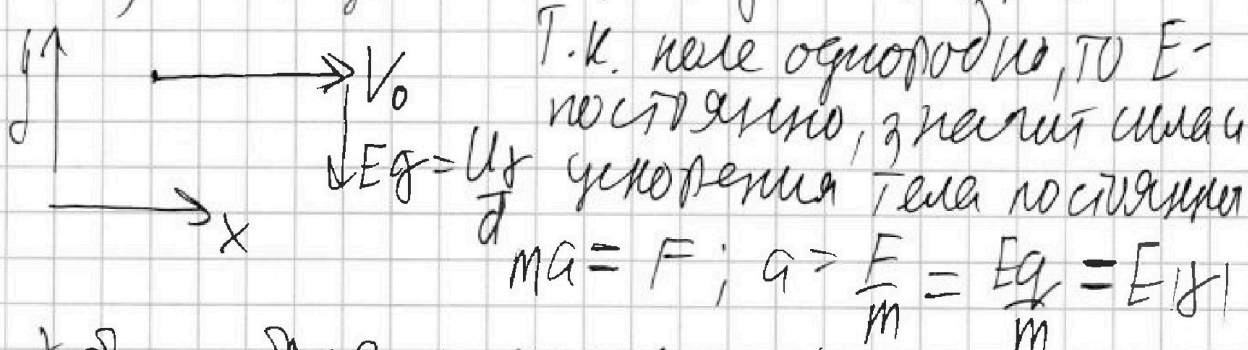 y
V₀
Eq = Uγ/d
x
Т.к. поле однородно, то E-
постоянно, значит сила и
ускорения тела постоянны
ma = F; a = F/m = Eq/m = E|γ|